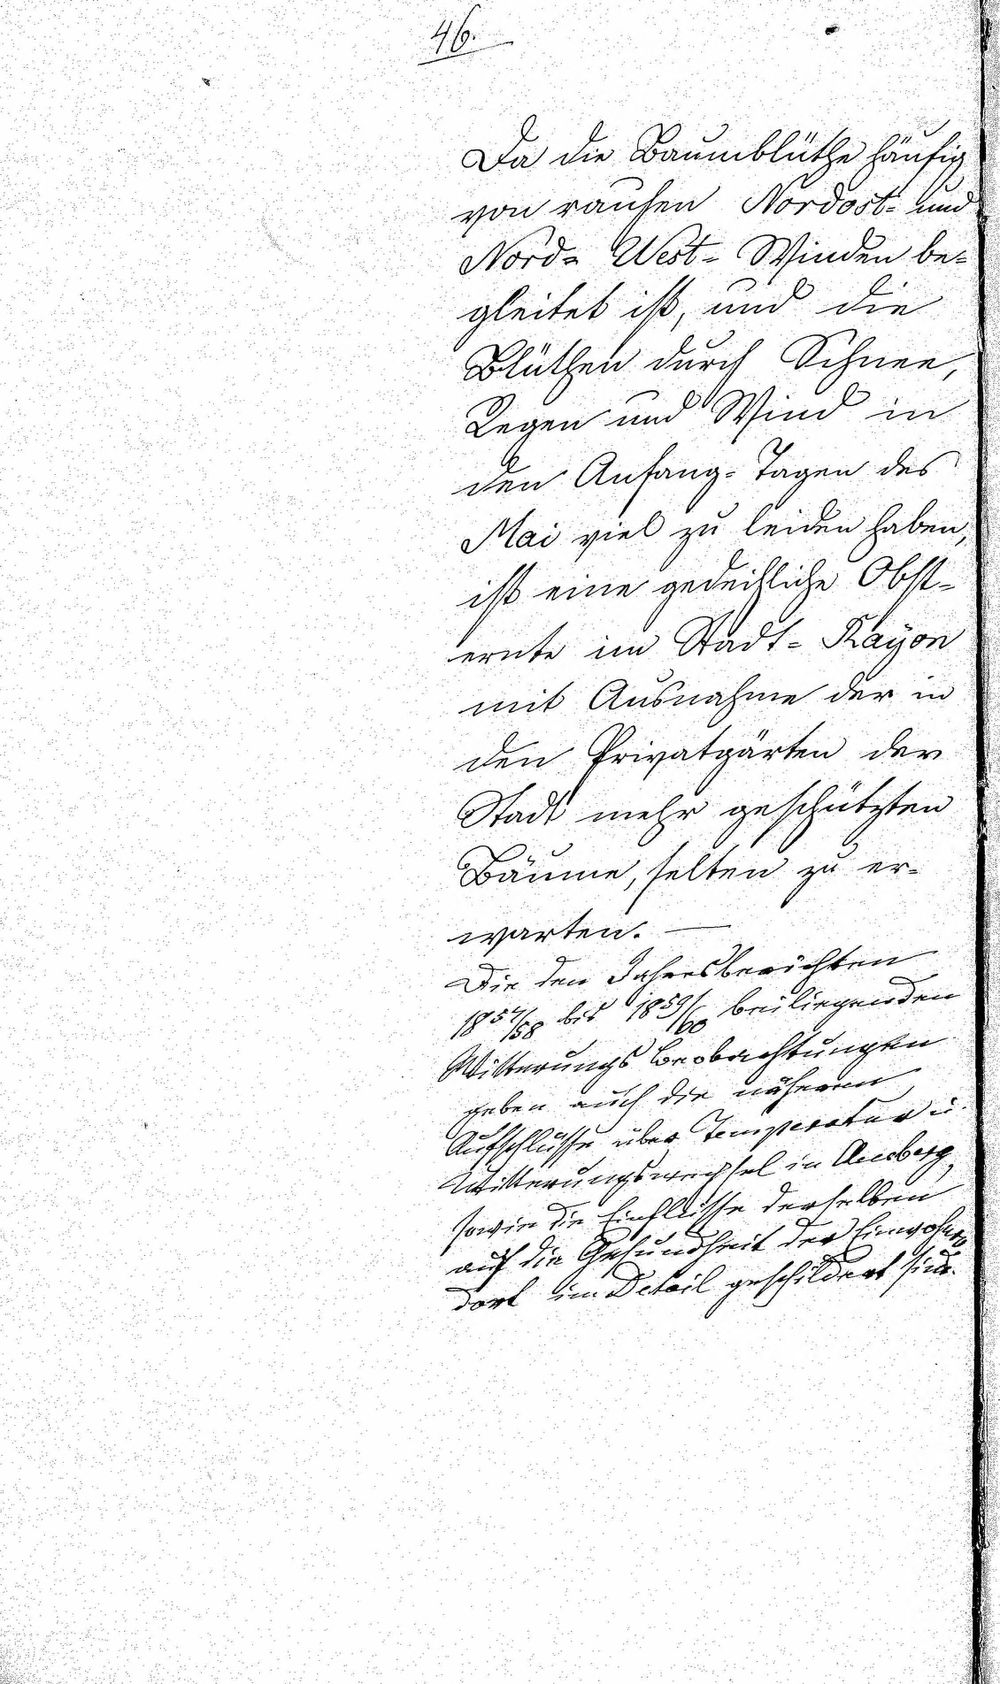 46.
Da die Baumblüthe häufig
von rauhen Nordost- und
Nord- West- Winden be-
gleitet ist, und die
Blüthen durch Schnee,
Regen und Wind in
den Anfang- Tagen des
Mai viel zu leiden haben,
ist eine gedeihliche Obst-
ernte im Stadt- Rayon
mit Ausnahme der in
den Privatgärten der
Stadt mehr geschützten
Bäume, selten zu er-
warten. —
Die den Jahresberichten
1857/58 bis 1859/60 beiliegenden
Witterungs Beobachtungen
geben auch die näheren
Aufschlüsse über Temperatur u.
Witterungswechsel in Amberg,
sowie die Einflüsse derselben
auf die Gesundheit der Einwohner
dort im Detail geschildert sind.